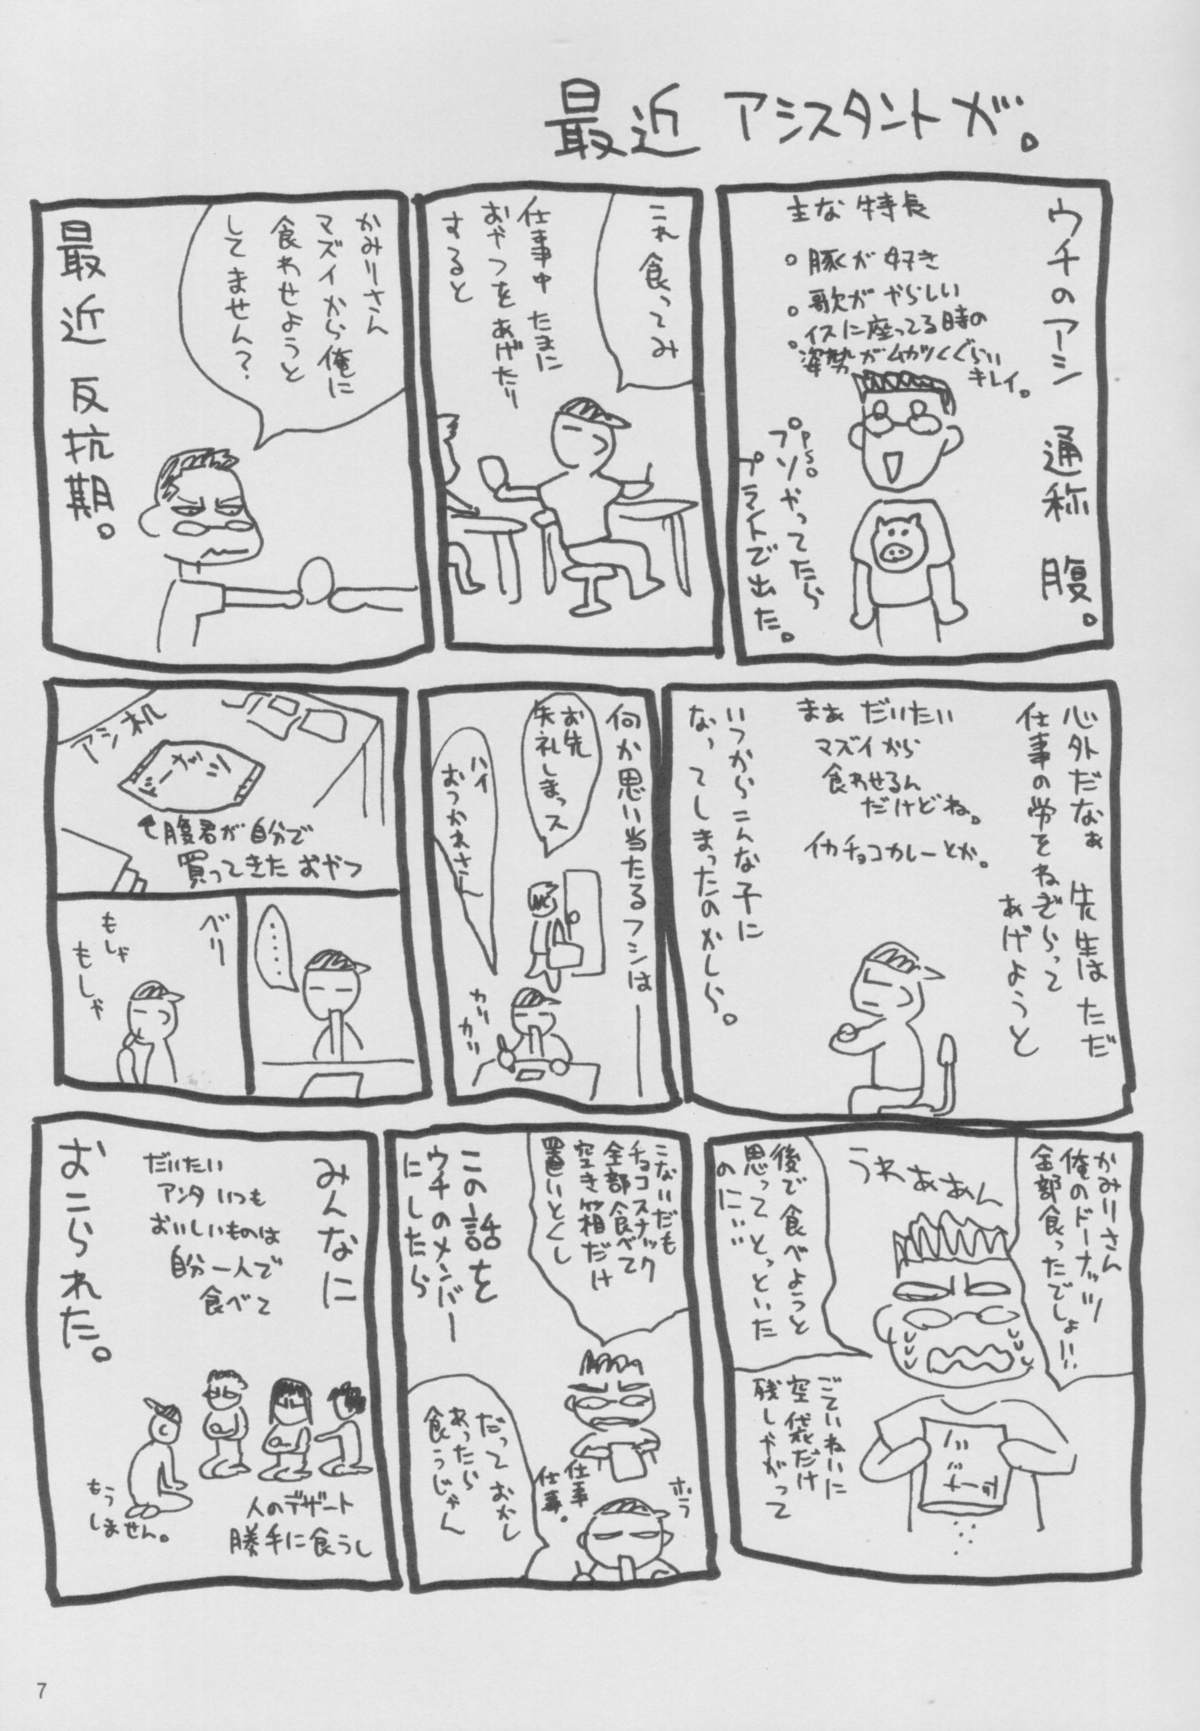 最近 アシスタントが。
ウチのアシ 通称 腹。
主な特長
。豚が好き
。歌がやらしい
。イスに座ってる時の
姿勢がムカツくぐらい
キレイ。
PSO。
プソやってたら
プラントで出た。
これ食ってみ
仕事中たまに
おやつをあげたり
すると
かみりさん
マズイから俺に
食わせようと
してません?
最近 反抗期。
心外だなぁ 先生はただ
仕事の労をねぎらって
あげようと
まぁ だいたい
マズイから
食わせるん
だけどね。
イカチョコカレーとか。
いつからこんな子に
なってしまったのかしら。
何か思い当たるフシは――
お先
失礼しまっス
ハイ
おつかれさん
カリ
カリ
アシ机
←腹君が自分で
買ってきたおやつ
・・・・
ベリ
もしゃ
もしゃ
かみりさん
俺のドーナッツ
全部食ったでしょ!!
うわぁぁん
後で食べようと
思ってとっといた
のにぃぃ
ごていねいに
空袋だけ
残しやがって
こないだも
チョコスナック
全部食べて
空き箱だけ
置いとくし
ホラ
仕事
仕事。
だって おかし
あったら
食うじゃん
この話を
ウチのメンバー
にしたら
みんなに
だいたい
アンタいつも
おいしいものは
自分一人で
食べて
人のデザート
勝手に食うし
もう
しません。
おこられた。
7